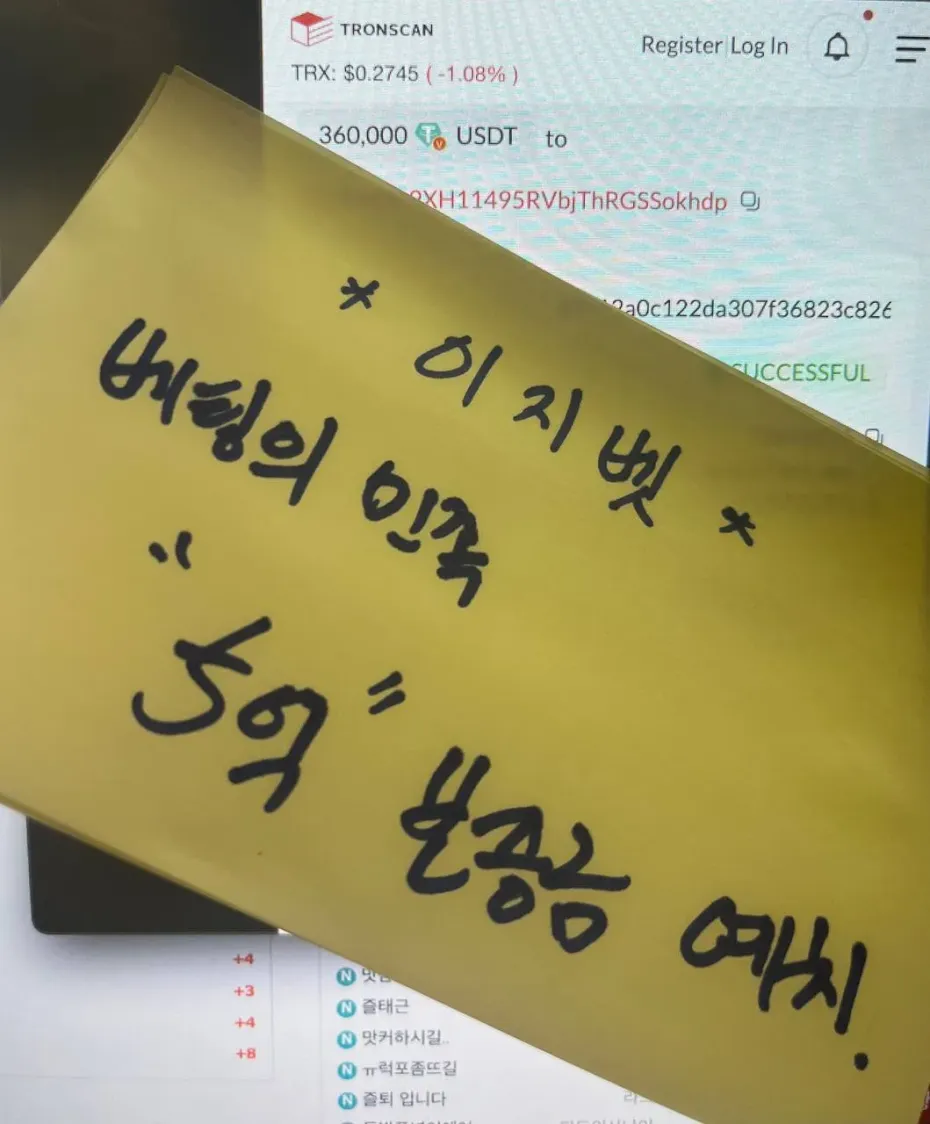 TRONSCAN
Register Log In
TRX: $0.2745 ( -1.08% )
360,000 USDT to
XH11495RVbjThRGSSokhdp
2a0c122da307f36823c826
SUCCESSFUL
* 이지벳 *
베팅의 민족
"5억" 보증금 예치.
+4
+3
+4
+8
N
N 즐태근
N 맛커하시길..
N ㅠ럭포좀뜨길
N 즐퇴 입니다